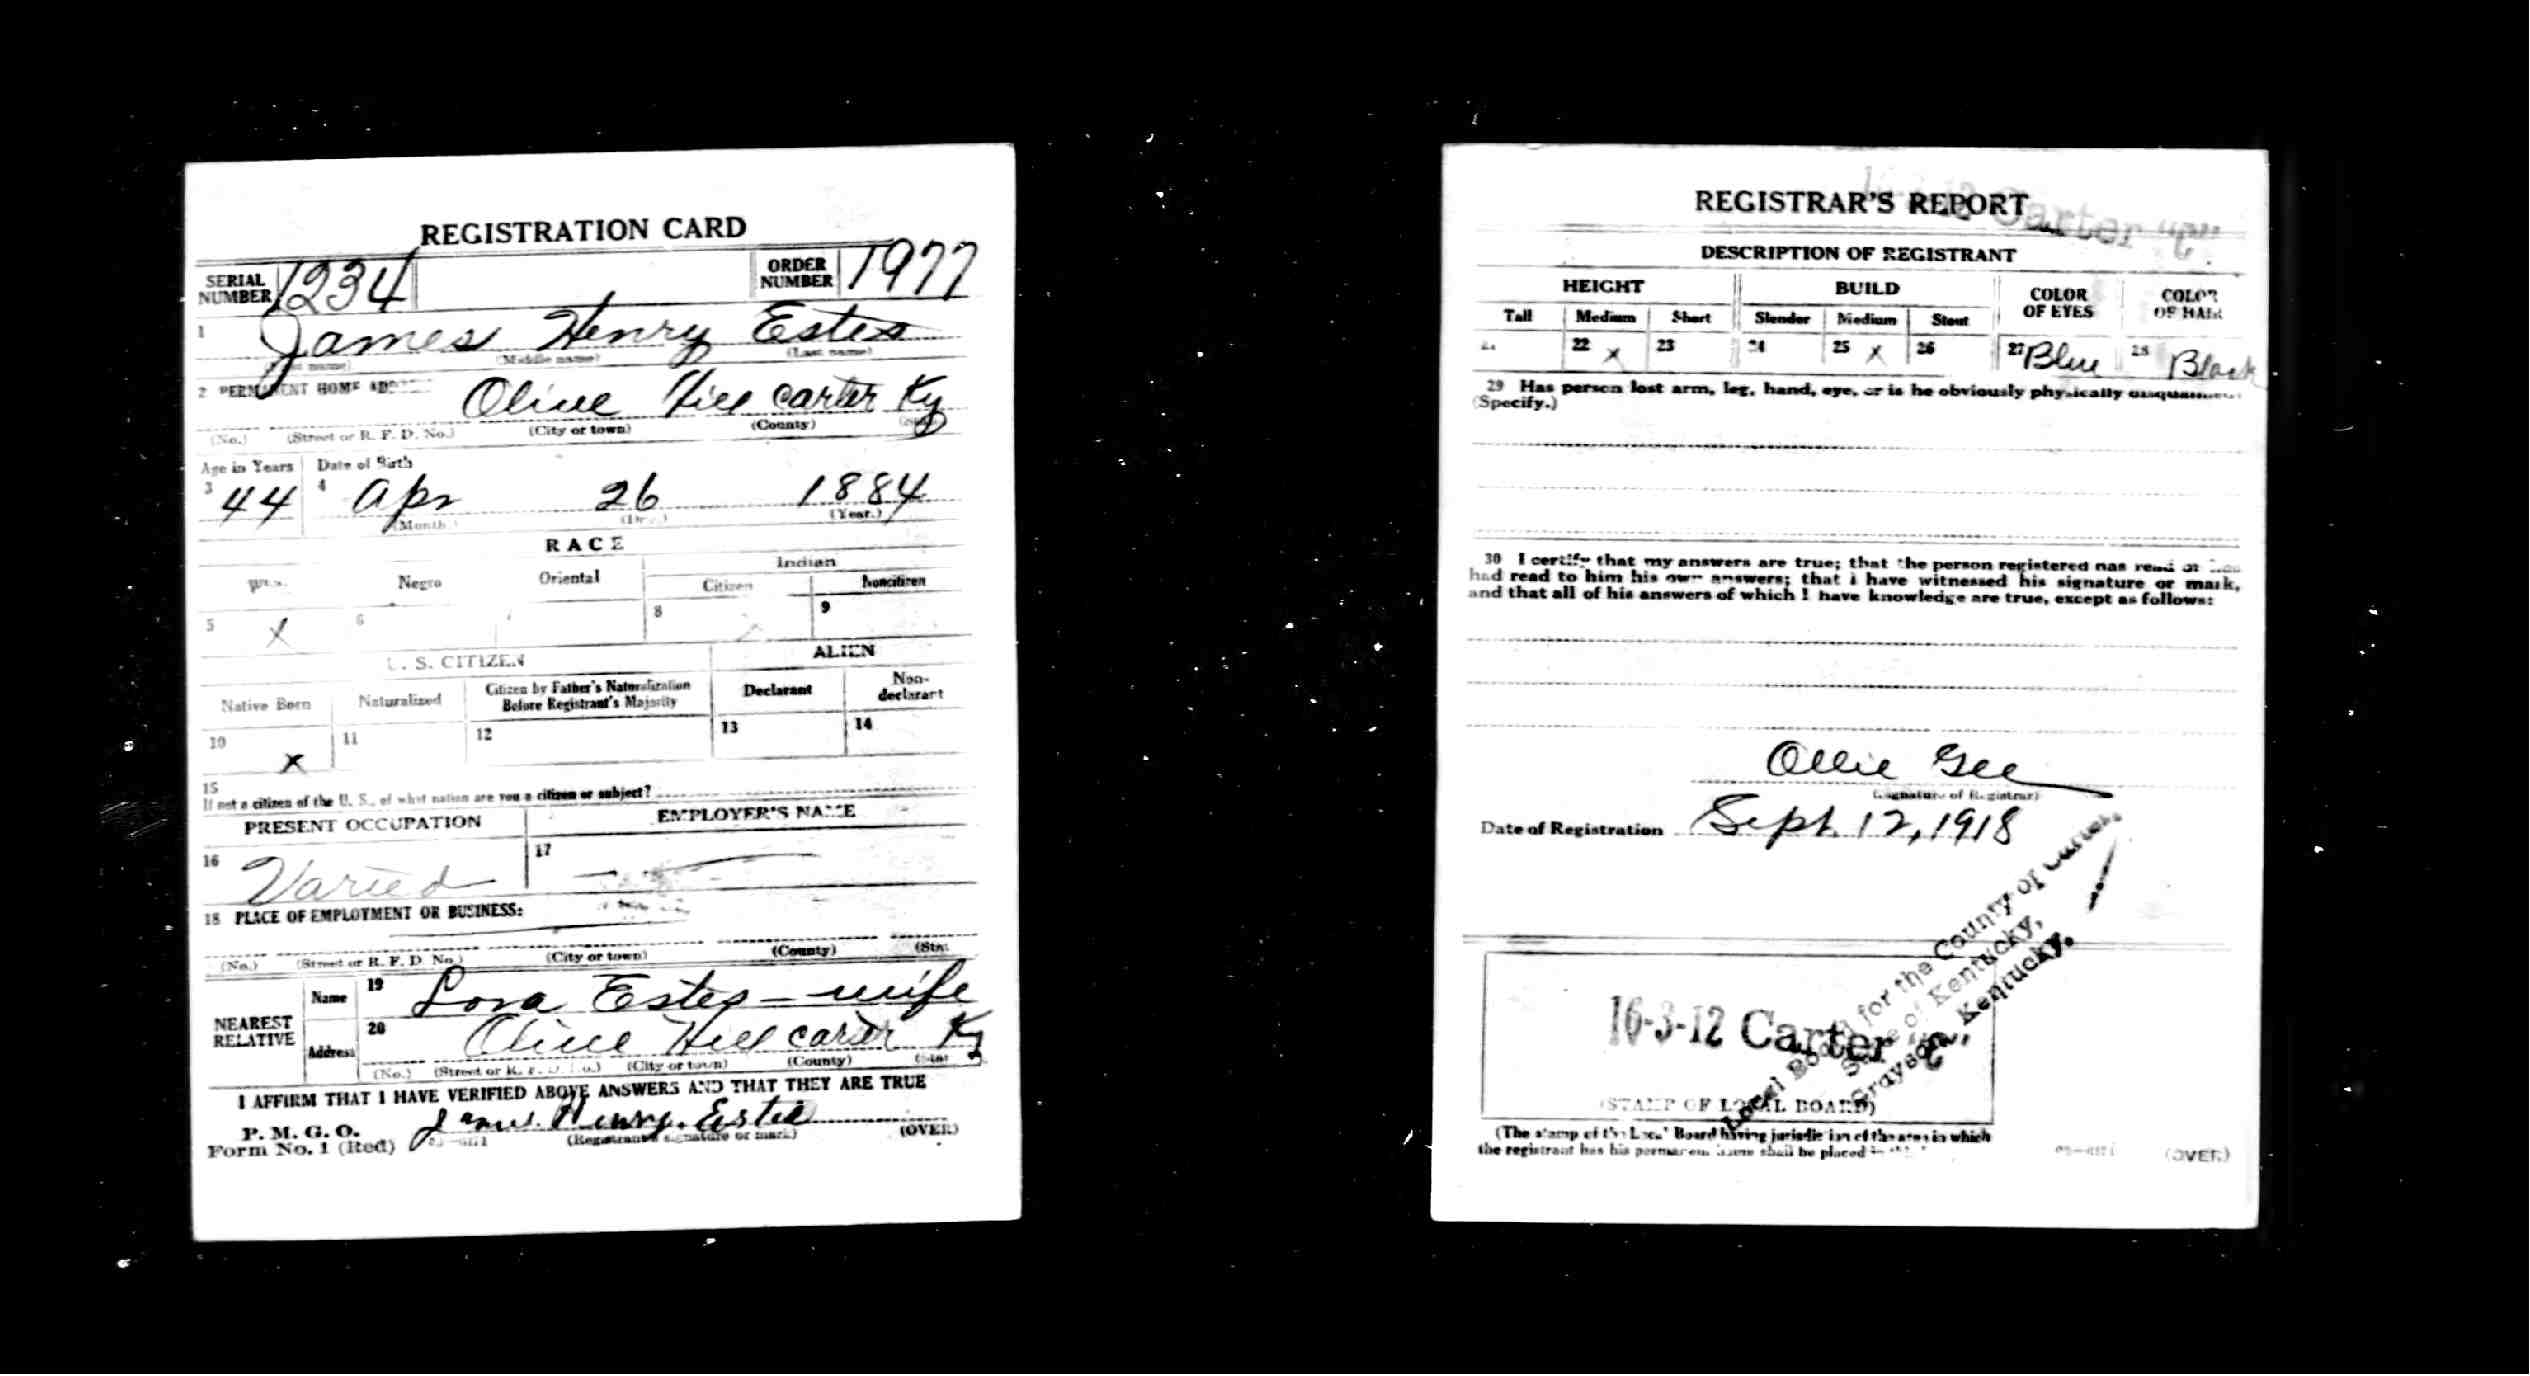 REGISTRATION CARD
SERIAL NUMBER 1234 ORDER NUMBER 1977
1 James Henry Estes
(Middle name) (Last name)
2 PERMANENT HOME Olive Hill Carter Ky
(No.) (Street or R. F. D. No.) (City or town) (County)
Age in Years Date of Birth
3 44 4 Apr 26 1884
(Month.) (Year.)
RACE
Indian
Negro Oriental Citizen Noncitizen
5 X 6 8 9
U. S. CITIZEN ALIEN
Native Born Naturalized Citizen by Father's Naturalization Before Registrant's Majority Declarant Non-declarant
10 x 11 12 13 14
15
If not a citizen of the U. S., of what nation are you a citizen or subject?
PRESENT OCCUPATION EMPLOYER'S NAME
16 Varied 17
18 PLACE OF EMPLOYMENT OR BUSINESS:
(No.) (Street or R. F. D. No.) (City or town) (County)
NEAREST RELATIVE Name 19 Lova Estes - wife
Address 20 Olive Hill Carter Ky
(No.) (City or town) (County)
I AFFIRM THAT I HAVE VERIFIED ABOVE ANSWERS AND THAT THEY ARE TRUE
P. M. G. O.
Form No. 1 (Red) James Henry Estes
(Registrant's signature or mark) (OVER)
REGISTRAR'S REPORT
Carter "C"
DESCRIPTION OF REGISTRANT
HEIGHT BUILD COLOR OF EYES COLOR OF HAIR
Tall Medium Short Slender Medium Stout
22 x 23 24 25 x 26 27 Blue 28 Black
29 Has person lost arm, leg, hand, eye, or is he obviously physically
(Specify.)
30 I certify that my answers are true; that the person registered has read or has
had read to him his own answers; that I have witnessed his signature or mark,
and that all of his answers of which I have knowledge are true, except as follows:
Ollie Gee
(Signature of Registrar)
Date of Registration Sept. 12, 1918
Local Board for the County of Carter,
State of Kentucky,
Grayson, Kentucky.
16-3-12 Carter "C"
(STAMP OF LOCAL BOARD)
(The stamp of the Local Board having jurisdiction of the area in which
the registrant has his permanent home shall be placed in
(OVER)